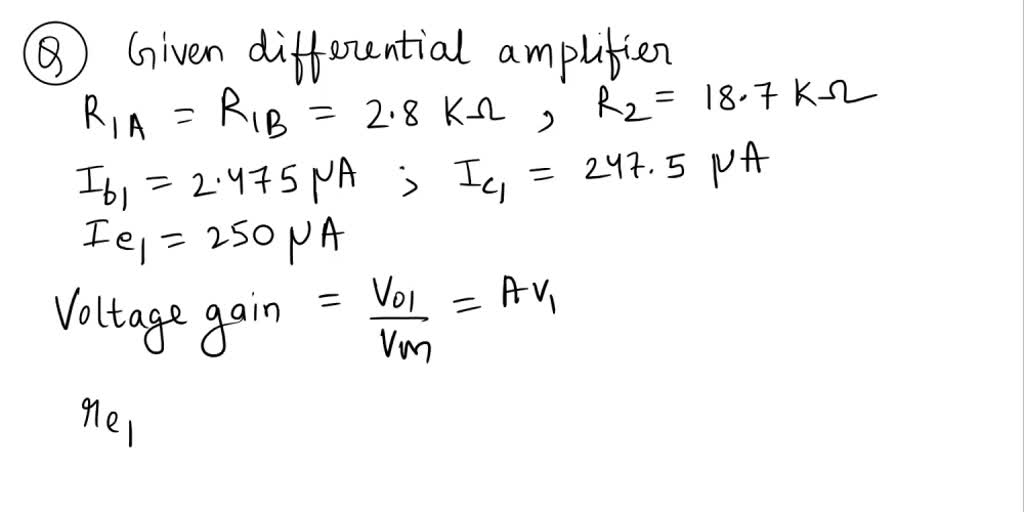 Q Given differential amplifier
R1A = R1B = 2.8 KΩ , R2 = 18.7 KΩ
Ib1 = 2.475 μA ; Ic1 = 247.5 μA
Ie1 = 250 μA
Voltage gain = Vo1/Vin = Av1
re1